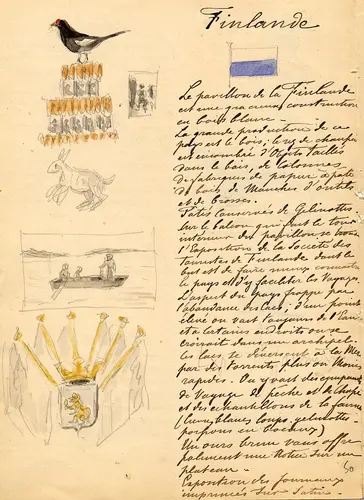 Finlande
Le pavillon de la Finlande
est une gracieuse construction
en bois blanc.
La grande production de ce
pays est le bois; le rez de chaussée
est encombré d'Objets taillés
dans le bois, de colonnes
de fabriques de papier à pate
de bois de Manches d'outils
et de brosses.
Patés conservés de Gelinottes
Sur le balcon qui fait le tour
intérieur du pavillon se trouve
l'Exposition de la Société des
Touristes de Finlande dont le
but est de faire mieux connaître
le pays et d'y faciliter les voyages
L'aspect du pays frappe par
l'abondance des lacs; d'un point
élevé on voit toujours de l'Eau
et à certains endroits on se
croirait dans un archipel.
les lacs se déversent à la Mer
par des torrents plus ou Moins
rapides. On y voit des
de Voyage de pêche et de chasse
et des échantillons de la faune
(loups
poissons en bocaux)
Un ours brun vous offre
galamment une Notice sur un
plateau.
Exposition des journaux
imprimés sur Patés
50